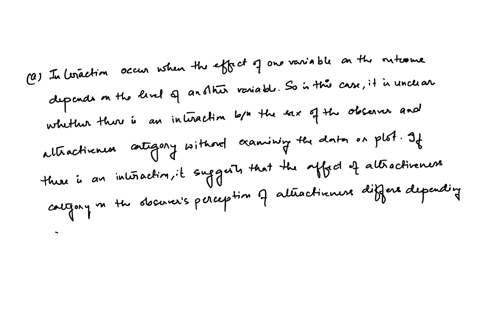 (a) Interaction occur when the effect of one variable on the outcome
depends on the level of another variable. So in this case, it is unclear
whether there is an interaction b/n the sex of the observer and
attractiveness category without examining the data or plot. If
there is an interaction, it suggests that the effect of attractiveness
category on the observer's perception of attractiveness differs depending